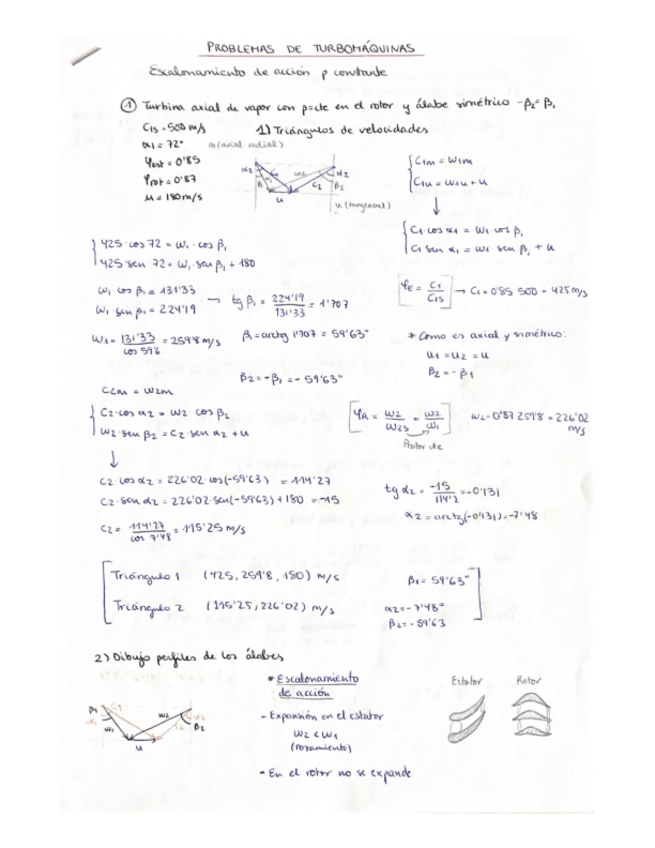 PROBLEMAS DE TURBOMÁQUINAS
Escalonamiento de acción p constante
① Turbina axial de vapor con p=cte en el rotor y álabe simétrico -β2=β1
C1s = 500 m/s
α1 = 72°
φest = 0'85
φrot = 0'87
u = 180 m/s
1) Triángulos de velocidades
m (axial radial)
u (tangencial)
C1m = W1m
C1u = W1u + u
↓
C1 cos α1 = W1 cos β1
C1 sen α1 = W1 sen β1 + u
425 · cos 72 = W1 · cos β1
425 sen 72 = W1 · sen β1 + 180
W1 cos β1 = 131'33
W1 sen β1 = 224'19
→ tg β1 = 224'19 / 131'33 = 1'707
φE = C1 / C1s → C1 = 0'85 500 = 425 m/s
W1 = 131'33 / cos 59'6 = 259'8 m/s
β1 = arctg 1'707 = 59'63°
* Como es axial y simétrico:
u1 = u2 = u
β2 = -β1
β2 = -β1 = -59'63°
C2m = W2m
C2 · cos α2 = W2 · cos β2
W2 · sen β2 = C2 · sen α2 + u
φR = W2 / W2s = W2 / W1
W2 = 0'87 259'8 = 226'02 m/s
Protor cte
↓
C2 · cos α2 = 226'02 · cos(-59'63) = 114'27
C2 · sen α2 = 226'02 · sen(-59'63) + 180 = -15
tg α2 = -15 / 114'2 = -0'131
α2 = arctg(-0'131) = -7'48
C2 = 114'27 / cos 7'48 = 115'25 m/s
Triángulo 1 (425, 259'8, 180) m/s β1 = 59'63°
Triángulo 2 (115'25, 226'02) m/s α2 = -7'48°
β2 = -59'63
2) Dibujo perfiles de los álabes
* Escalonamiento
de acción
- Expansión en el estator
W2 < W1
(rozamiento)
- En el rotor no se expande
Estator
Rotor
β1
C1
α1
W1
W2
C2
α2
β2
u